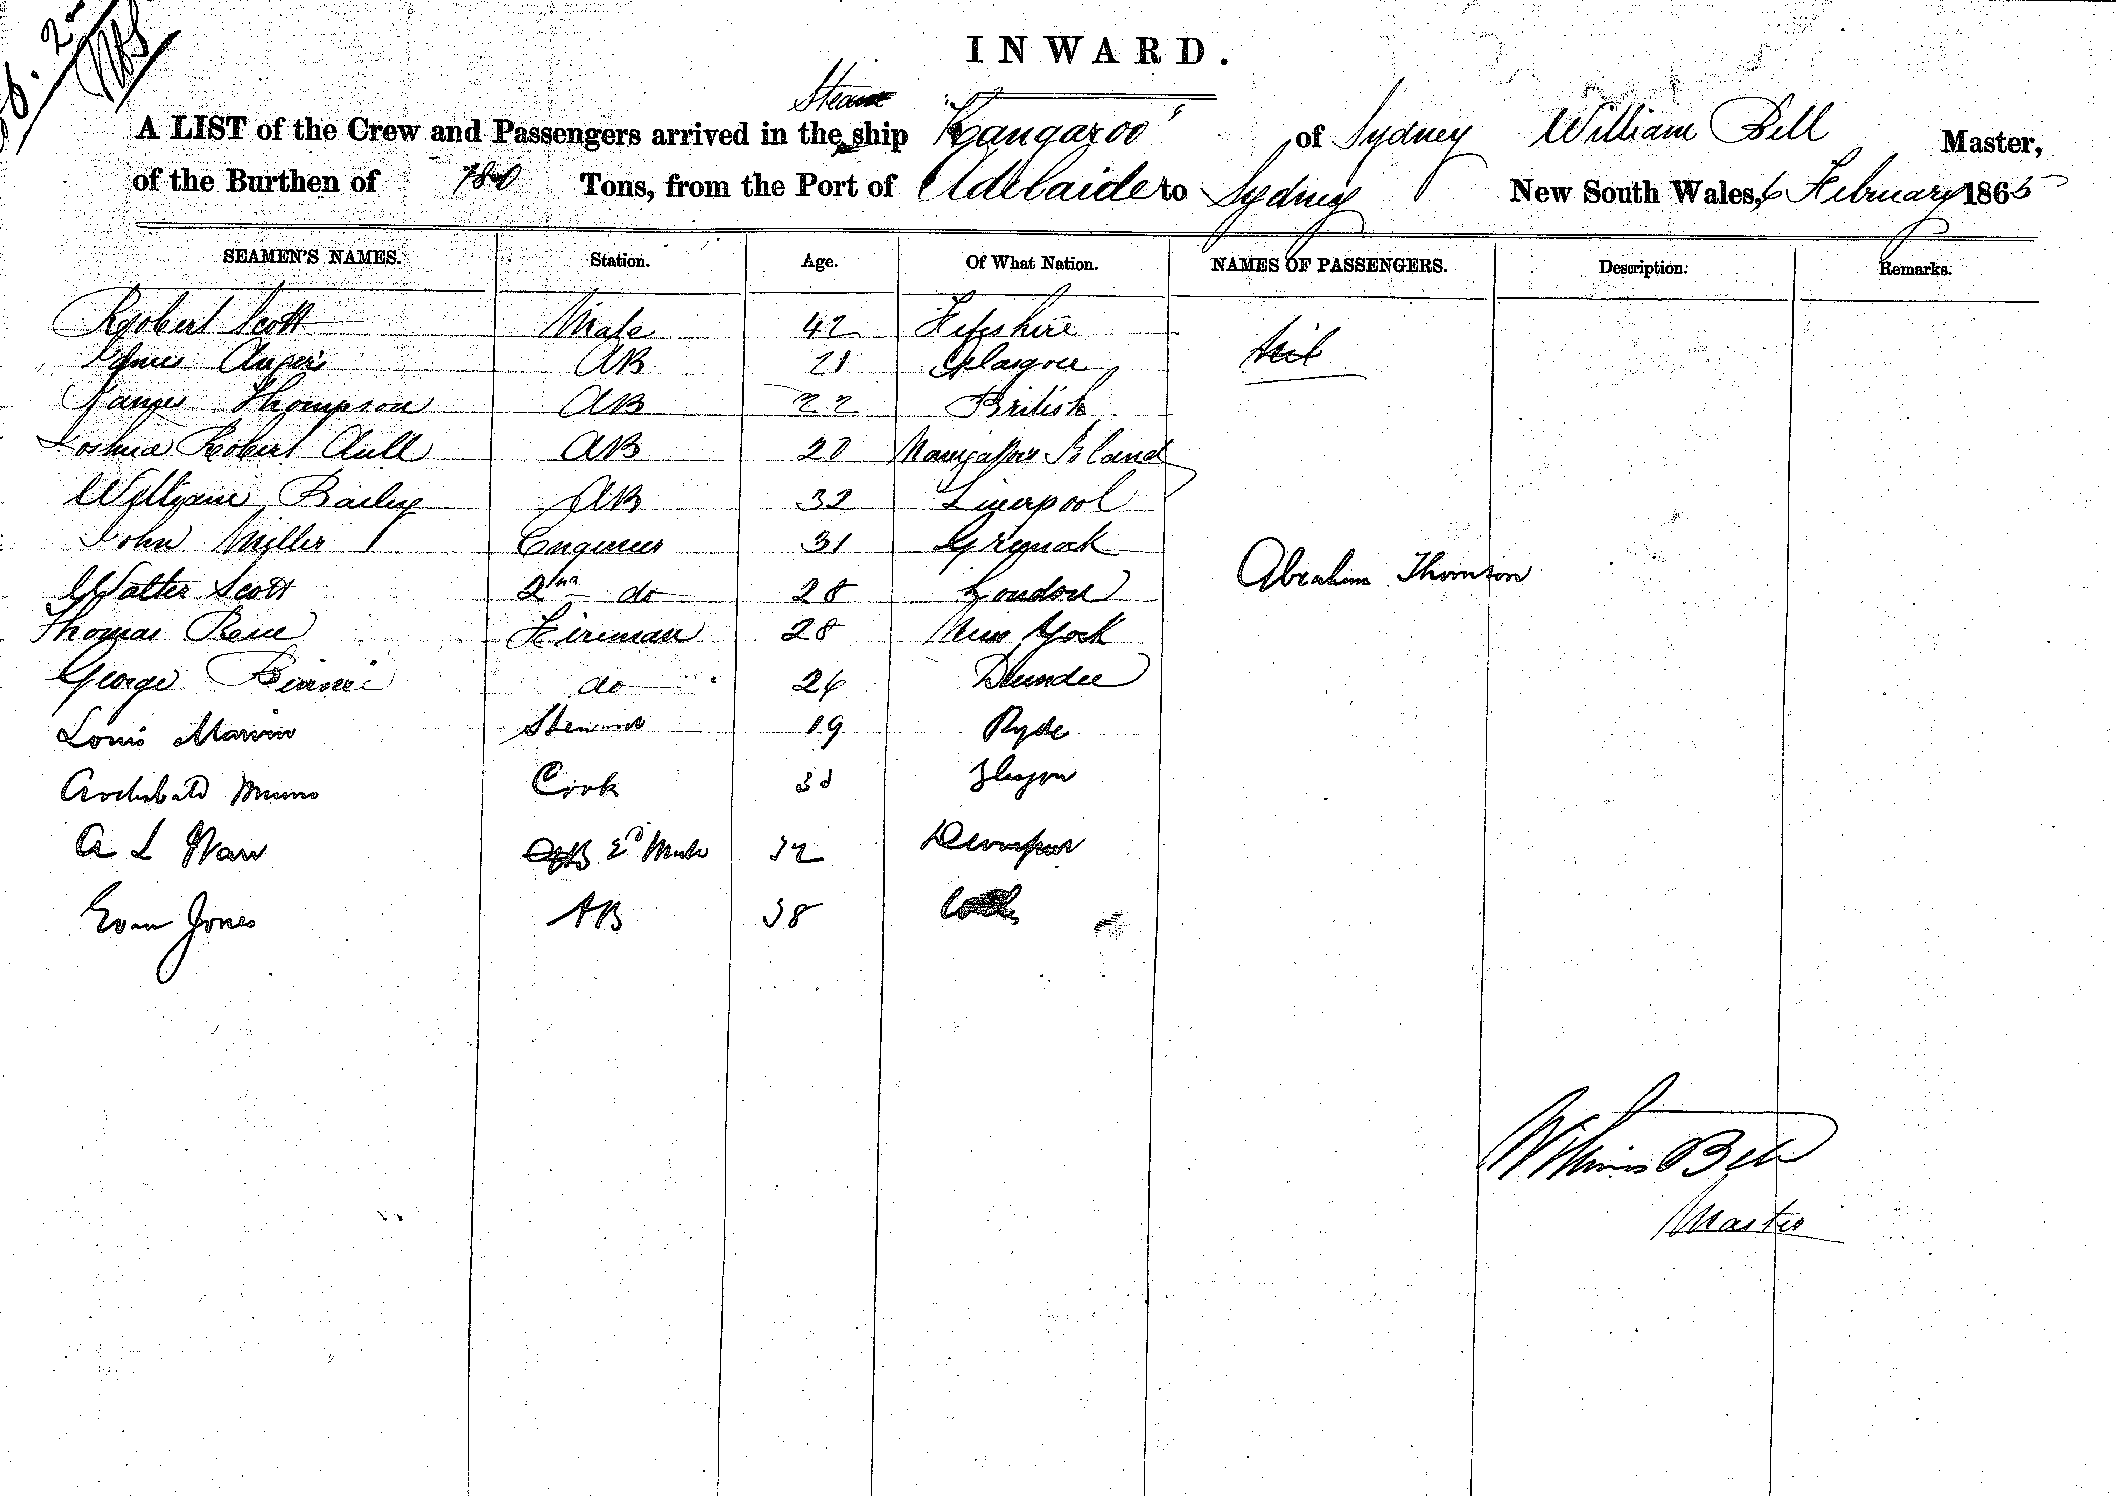 INWARD.
Steam
A LIST of the Crew and Passengers arrived in the ship "Kangaroo" of Sydney William Bell Master,
of the Burthen of 780 Tons, from the Port of Adelaide to Sydney New South Wales, 6 February 1865
SEAMEN'S NAMES. Station. Age. Of What Nation. NAMES OF PASSENGERS. Description. Remarks.
Robert Scott Mate 42 Fifeshire Nil
AB 21 Glasgow
James Thompson AB 22 British
Joshua Robert Aull AB 20 Navigators Island
William Bailey AB 32 Liverpool
John Miller Engineer 31 Greenock
Walter Scott 2nd do 28 London Abraham Thomson
Thomas Fireman 28 New York
George Binnie do 26 Dundee
Louis Steward 19 Ryde
Archibald Munro Cook Glasgow
A L 2d Mate 32 Devonport
Evan Jones AB 38
William Bell
Master